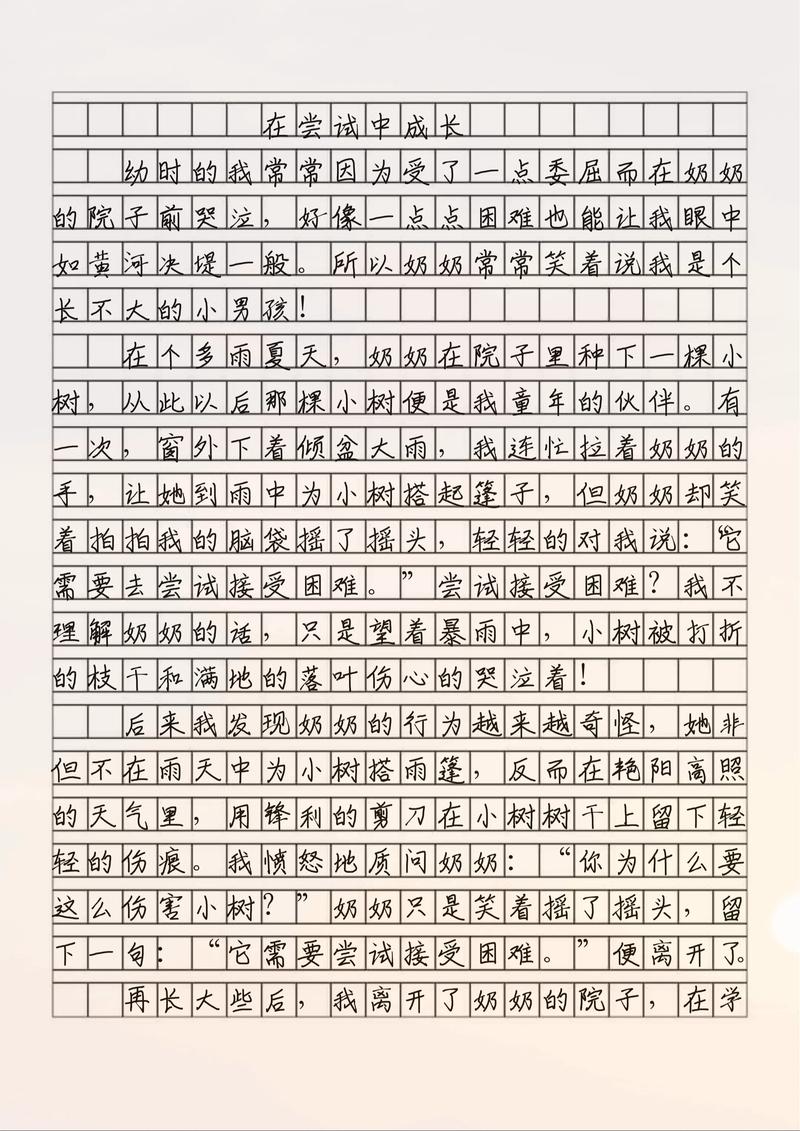 在尝试中成长
幼时的我常常因为受了一点委屈而在奶奶
的院子前哭泣，好像一点点困难也能让我眼中
如黄河决堤一般。所以奶奶常常笑着说我是个
长不大的小男孩！
在个多雨夏天，奶奶在院子里种下一棵小
树，从此以后那棵小树便是我童年的伙伴。有
一次，窗外下着倾盆大雨，我连忙拉着奶奶的
手，让她到雨中为小树搭起篷子，但奶奶却笑
着拍拍我的脑袋摇了摇头，轻轻的对我说：“它
需要去尝试接受困难。”尝试接受困难？我不
理解奶奶的话，只是望着暴雨中，小树被打折
的枝干和满地的落叶伤心的哭泣着！
后来我发现奶奶的行为越来越奇怪，她非
但不在雨天中为小树搭雨篷，反而在艳阳高照
的天气里，用锋利的剪刀在小树树干上留下轻
轻的伤痕。我愤怒地质问奶奶：“你为什么要
这么伤害小树？”奶奶只是笑着摇了摇头，留
下一句：“它需要尝试接受困难。”便离开了。
再长大些后，我离开了奶奶的院子，在学